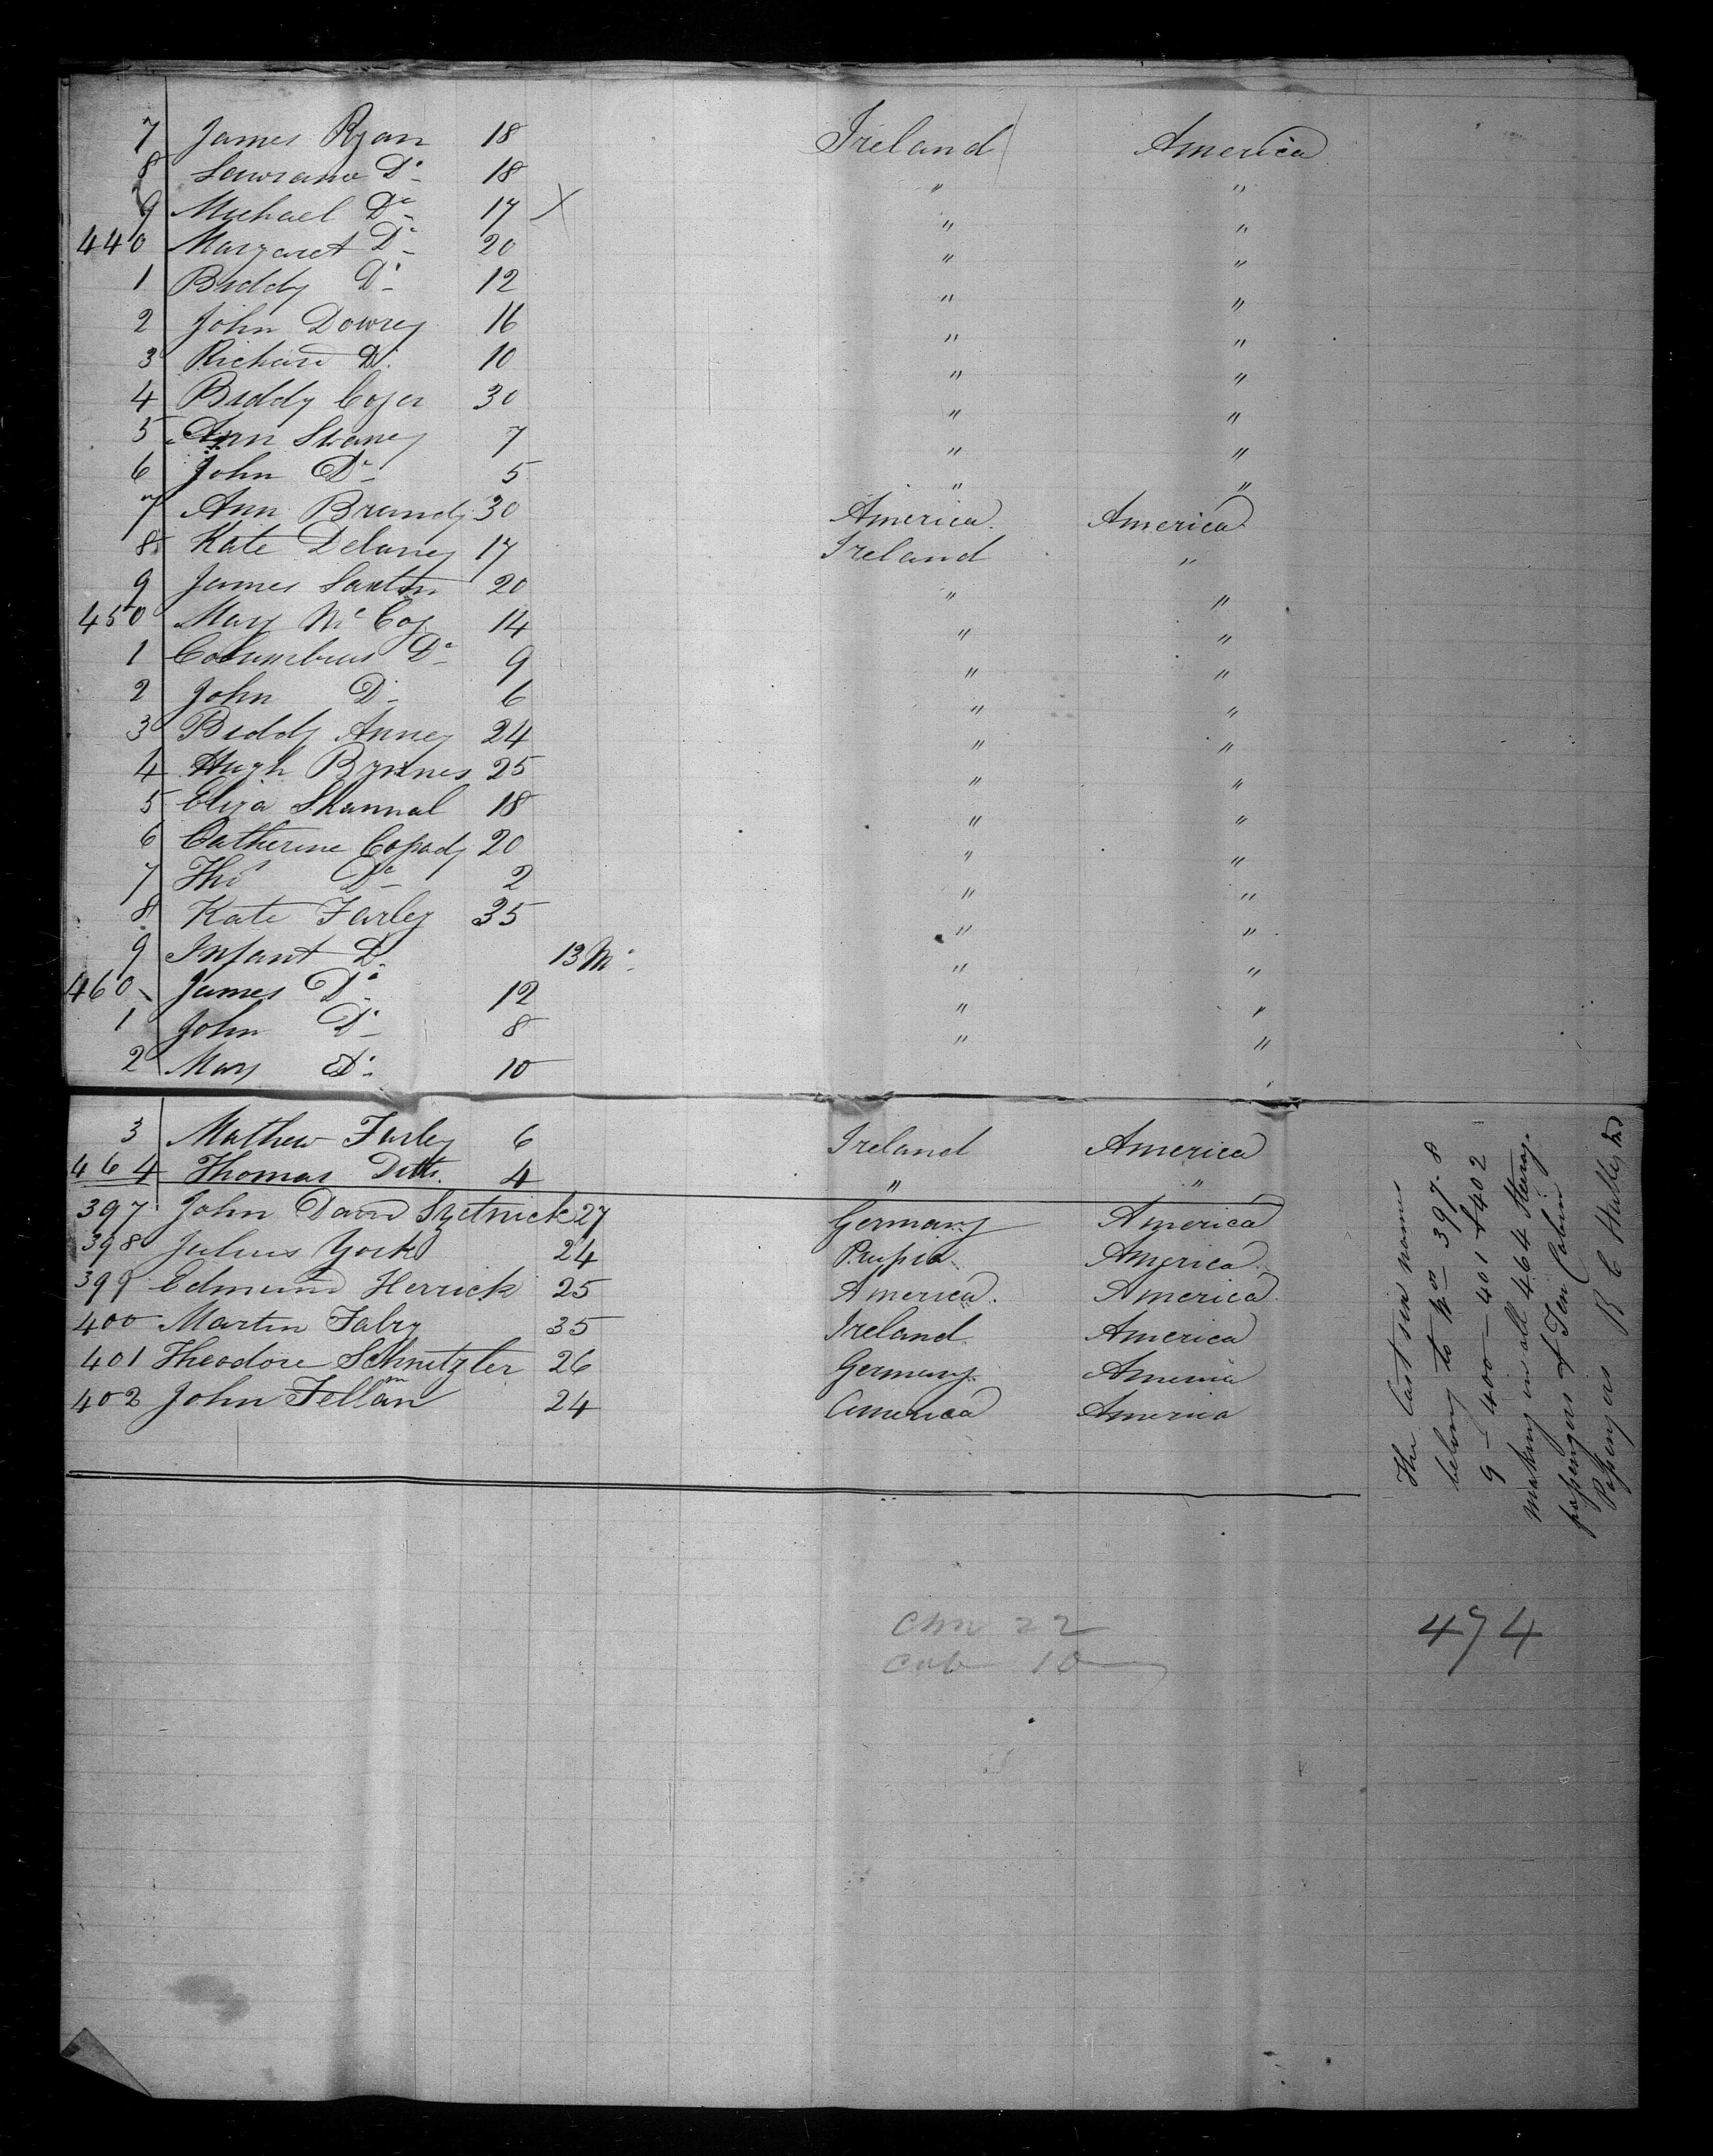 7 James Ryan 18 Ireland America
8 Lawrance Do 18 " "
9 Michael Do 17 X " "
440 Margaret Do 20 " "
1 Biddy Do 12 " "
2 John Dowrey 16 " "
3 Richard Do 10 " "
4 Biddy 30 " "
5 Ann 7 " "
6 John Do 5 " "
7 Ann Brandy 30 America America
8 Kate Delaney 17 Ireland "
9 James 20 " "
450 Mary McCoy 14 " "
1 Columbus Do 9 " "
2 John Do 6 " "
3 Biddy Anney 24 " "
4 Hugh Byrnes 25 " "
5 Eliza Shannal 18 " "
6 Catherine 20 " "
7 Thos Do 2 " "
8 Kate Farley 35 " "
9 Infant Do 13 Mo " "
460 James Do 12 " "
1 John Do 8 " "
2 Mary Do 10 "
3 Mathew Farley 6 Ireland America
464 Thomas Ditto 4 " "
397 John 27 Germany America
398 Julius York 24 Prussia America
399 Edmund Herrick 25 America America
400 Martin Fabry 35 Ireland America
401 Theodore Schnitzler 26 Germany America
402 John Fellman 24 America America
The Last six names
belong to Nos 397. 8
9 - 400 - 401 & 402
making in all 464 Steerage
passengers & Ten Cabin
Passengers R C
Chn 22
Cab 10
474